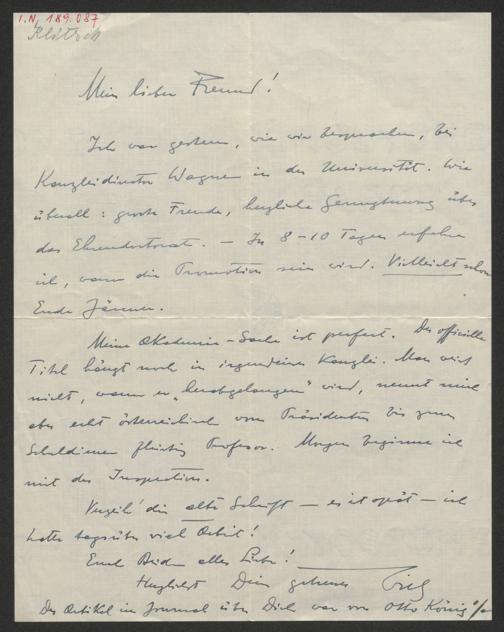 I.N. 189.087
Mein lieber Freund!
Ich war gestern, wie wir besprachen, bei
Kanzleidirektor Wagner in der Universität. Wie
überall: große Freude, herzliche Genugtuung über
das Ehrendoktorat. — In 8–10 Tagen erfahre
ich, wann die Promotion sein wird. Vielleicht schon
Ende Jänner.
Meine Akademie-Sache ist perfekt. Der offizielle
Titel hängt noch in irgendeiner Kanzlei. Man weiß
nicht, wann er „herabgelangen" wird, nennt mich
aber echt österreichisch vom Präsidenten bis zum
Schuldiener Professor. Morgen beginne ich
mit der Inspektion.
Verzeih' die alte Schrift — es ist spät — ich
hatte tagsüber viel Arbeit!
Euch Beiden alles Liebe!
Herzlichst Dein getreuer
Der Artikel im Journal über Dich war von Otto König